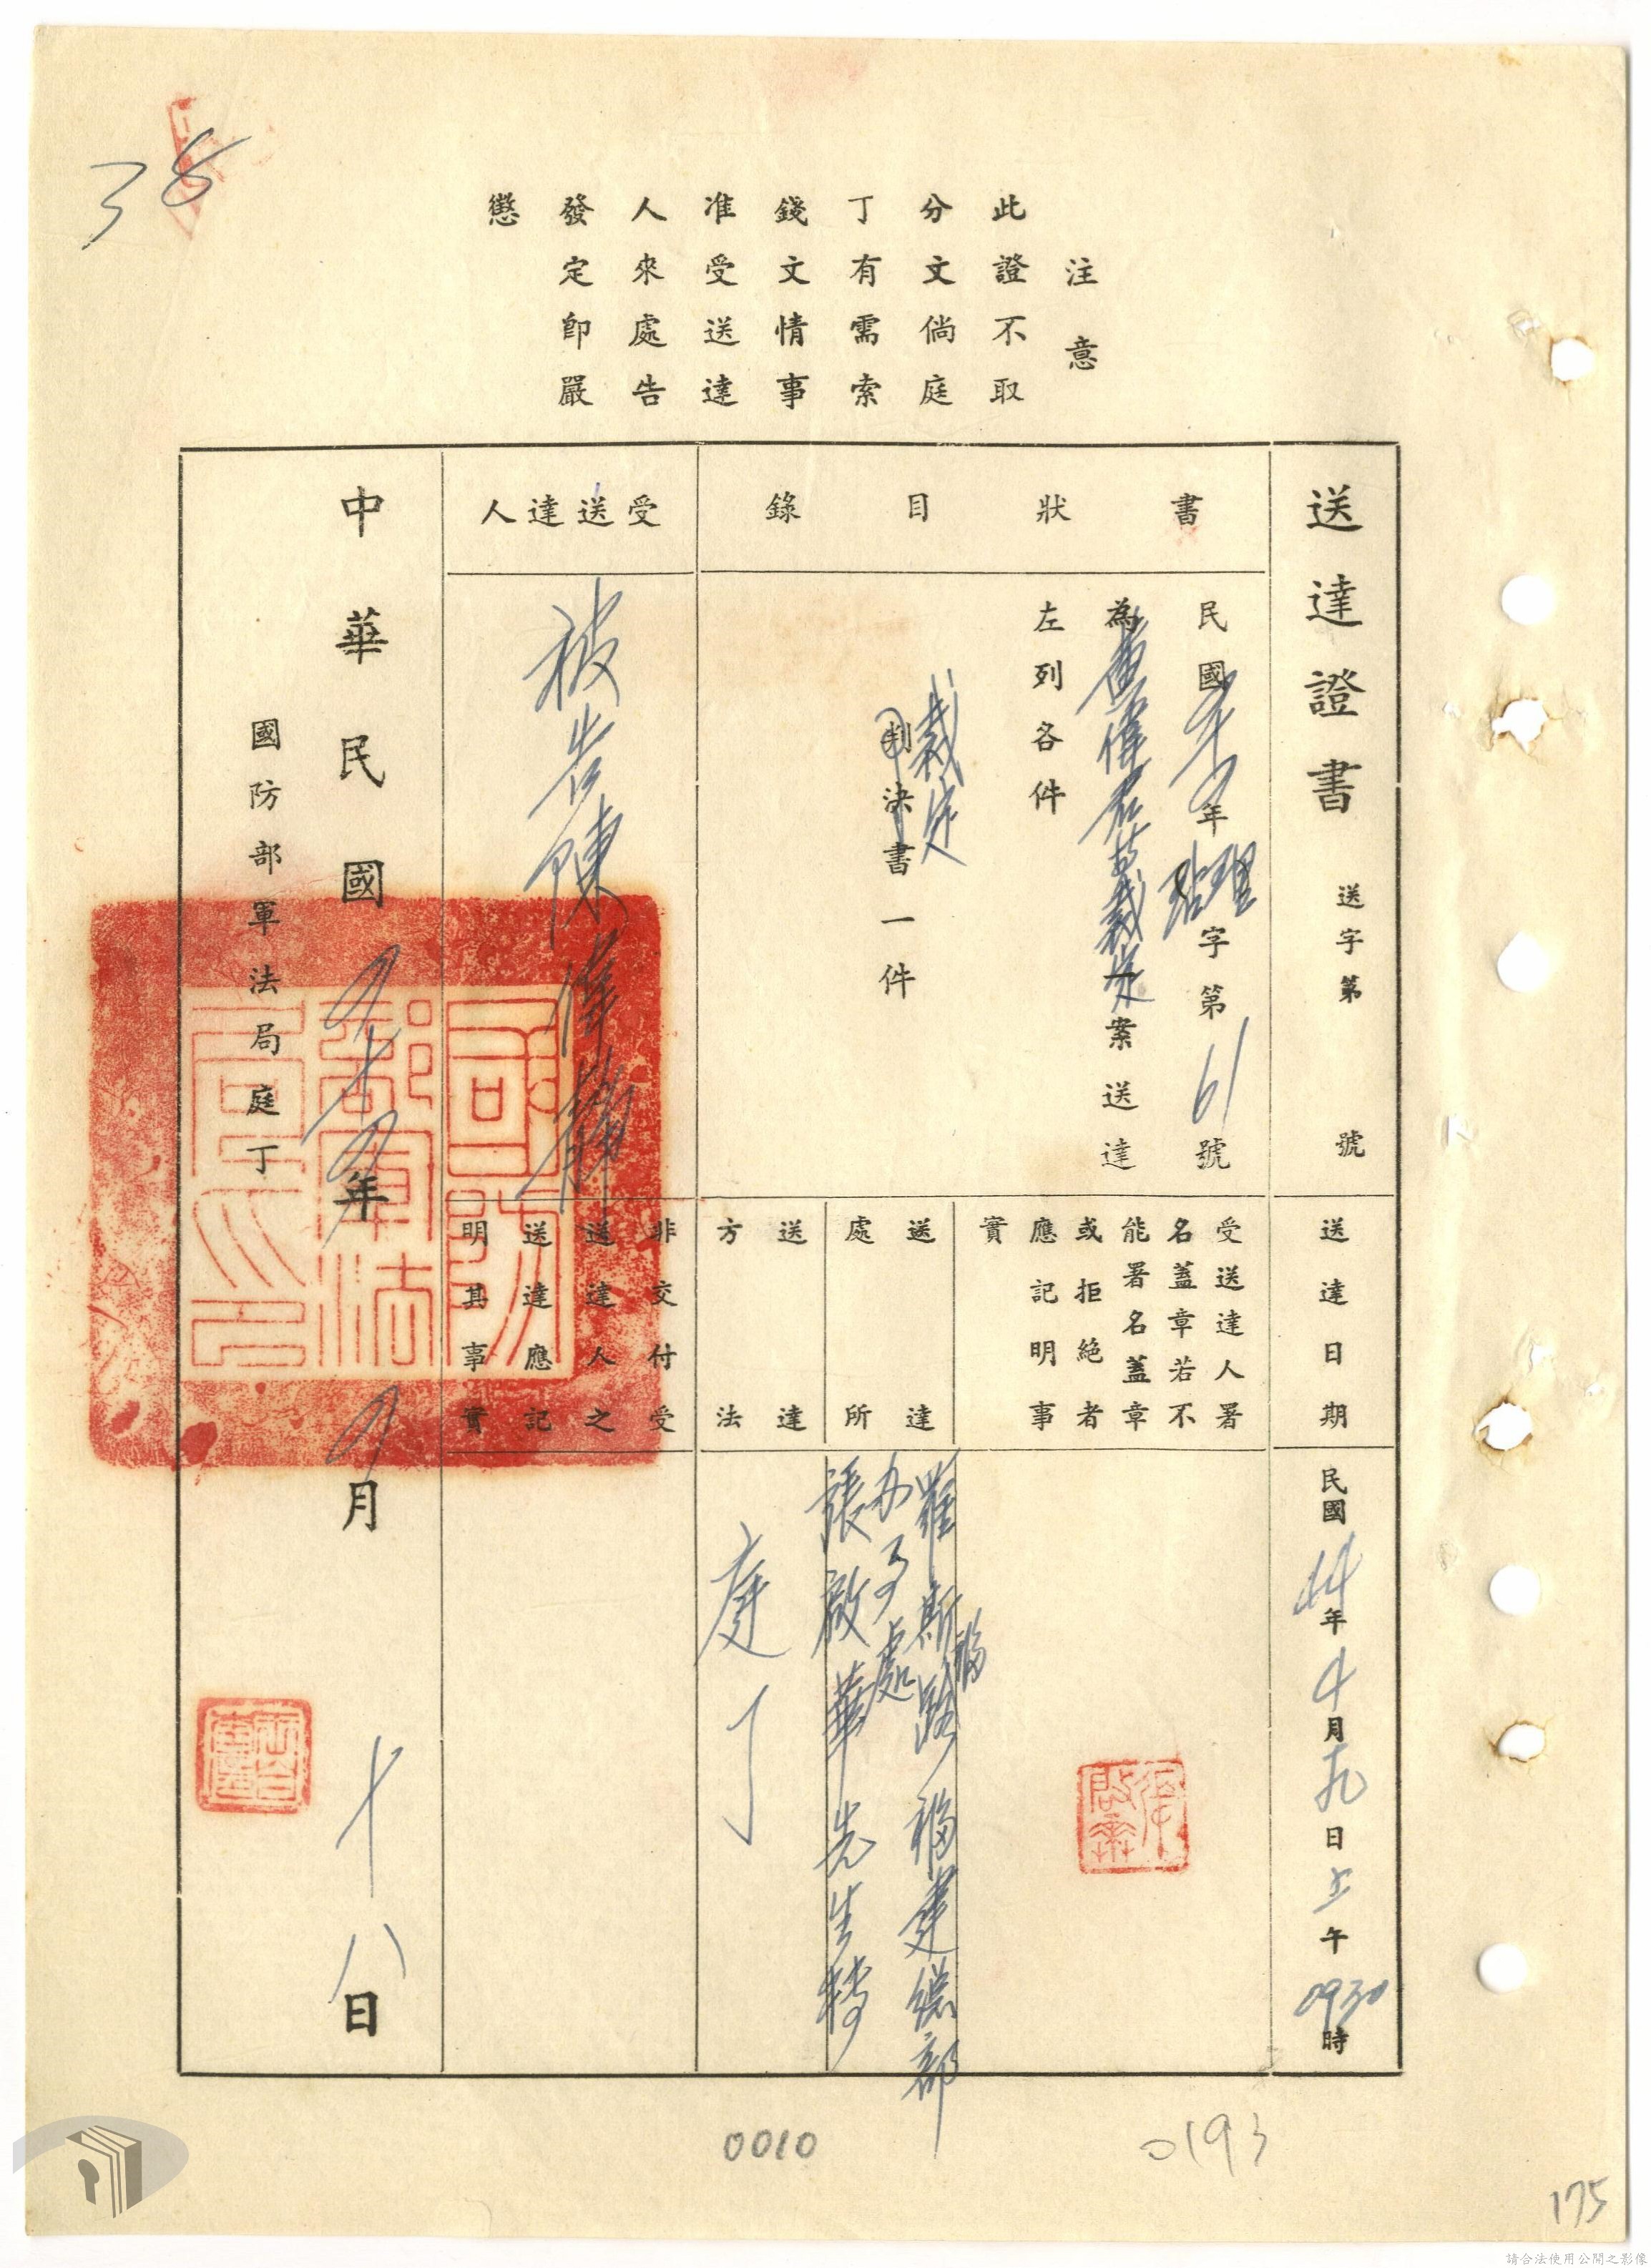 38
注意
此證不取
分文倘庭
丁有需索
錢文情事
准受送達
人來處告
發定即嚴
懲
送達證書 送字第 號
送達日期
民國44年4月十九日上午0930時
書狀目錄
民國 年 字第61號
為 裁定案送達
左列各件
裁定
判決書一件
受送達人署
名蓋章若不
能署名蓋章
或拒絕者
應記明事
實
張啟華
送達
處所
羅斯福路福建總部
办事處
張啟華先生轉
送達
方法
庭丁
受送達人
被告陳偉
非交付受
送達人之
送達應記
明其事實
中華民國四十四年四月十八日
國防部軍法局庭丁
國防部軍法局印
0010
0193
175
請合法使用公開之影像